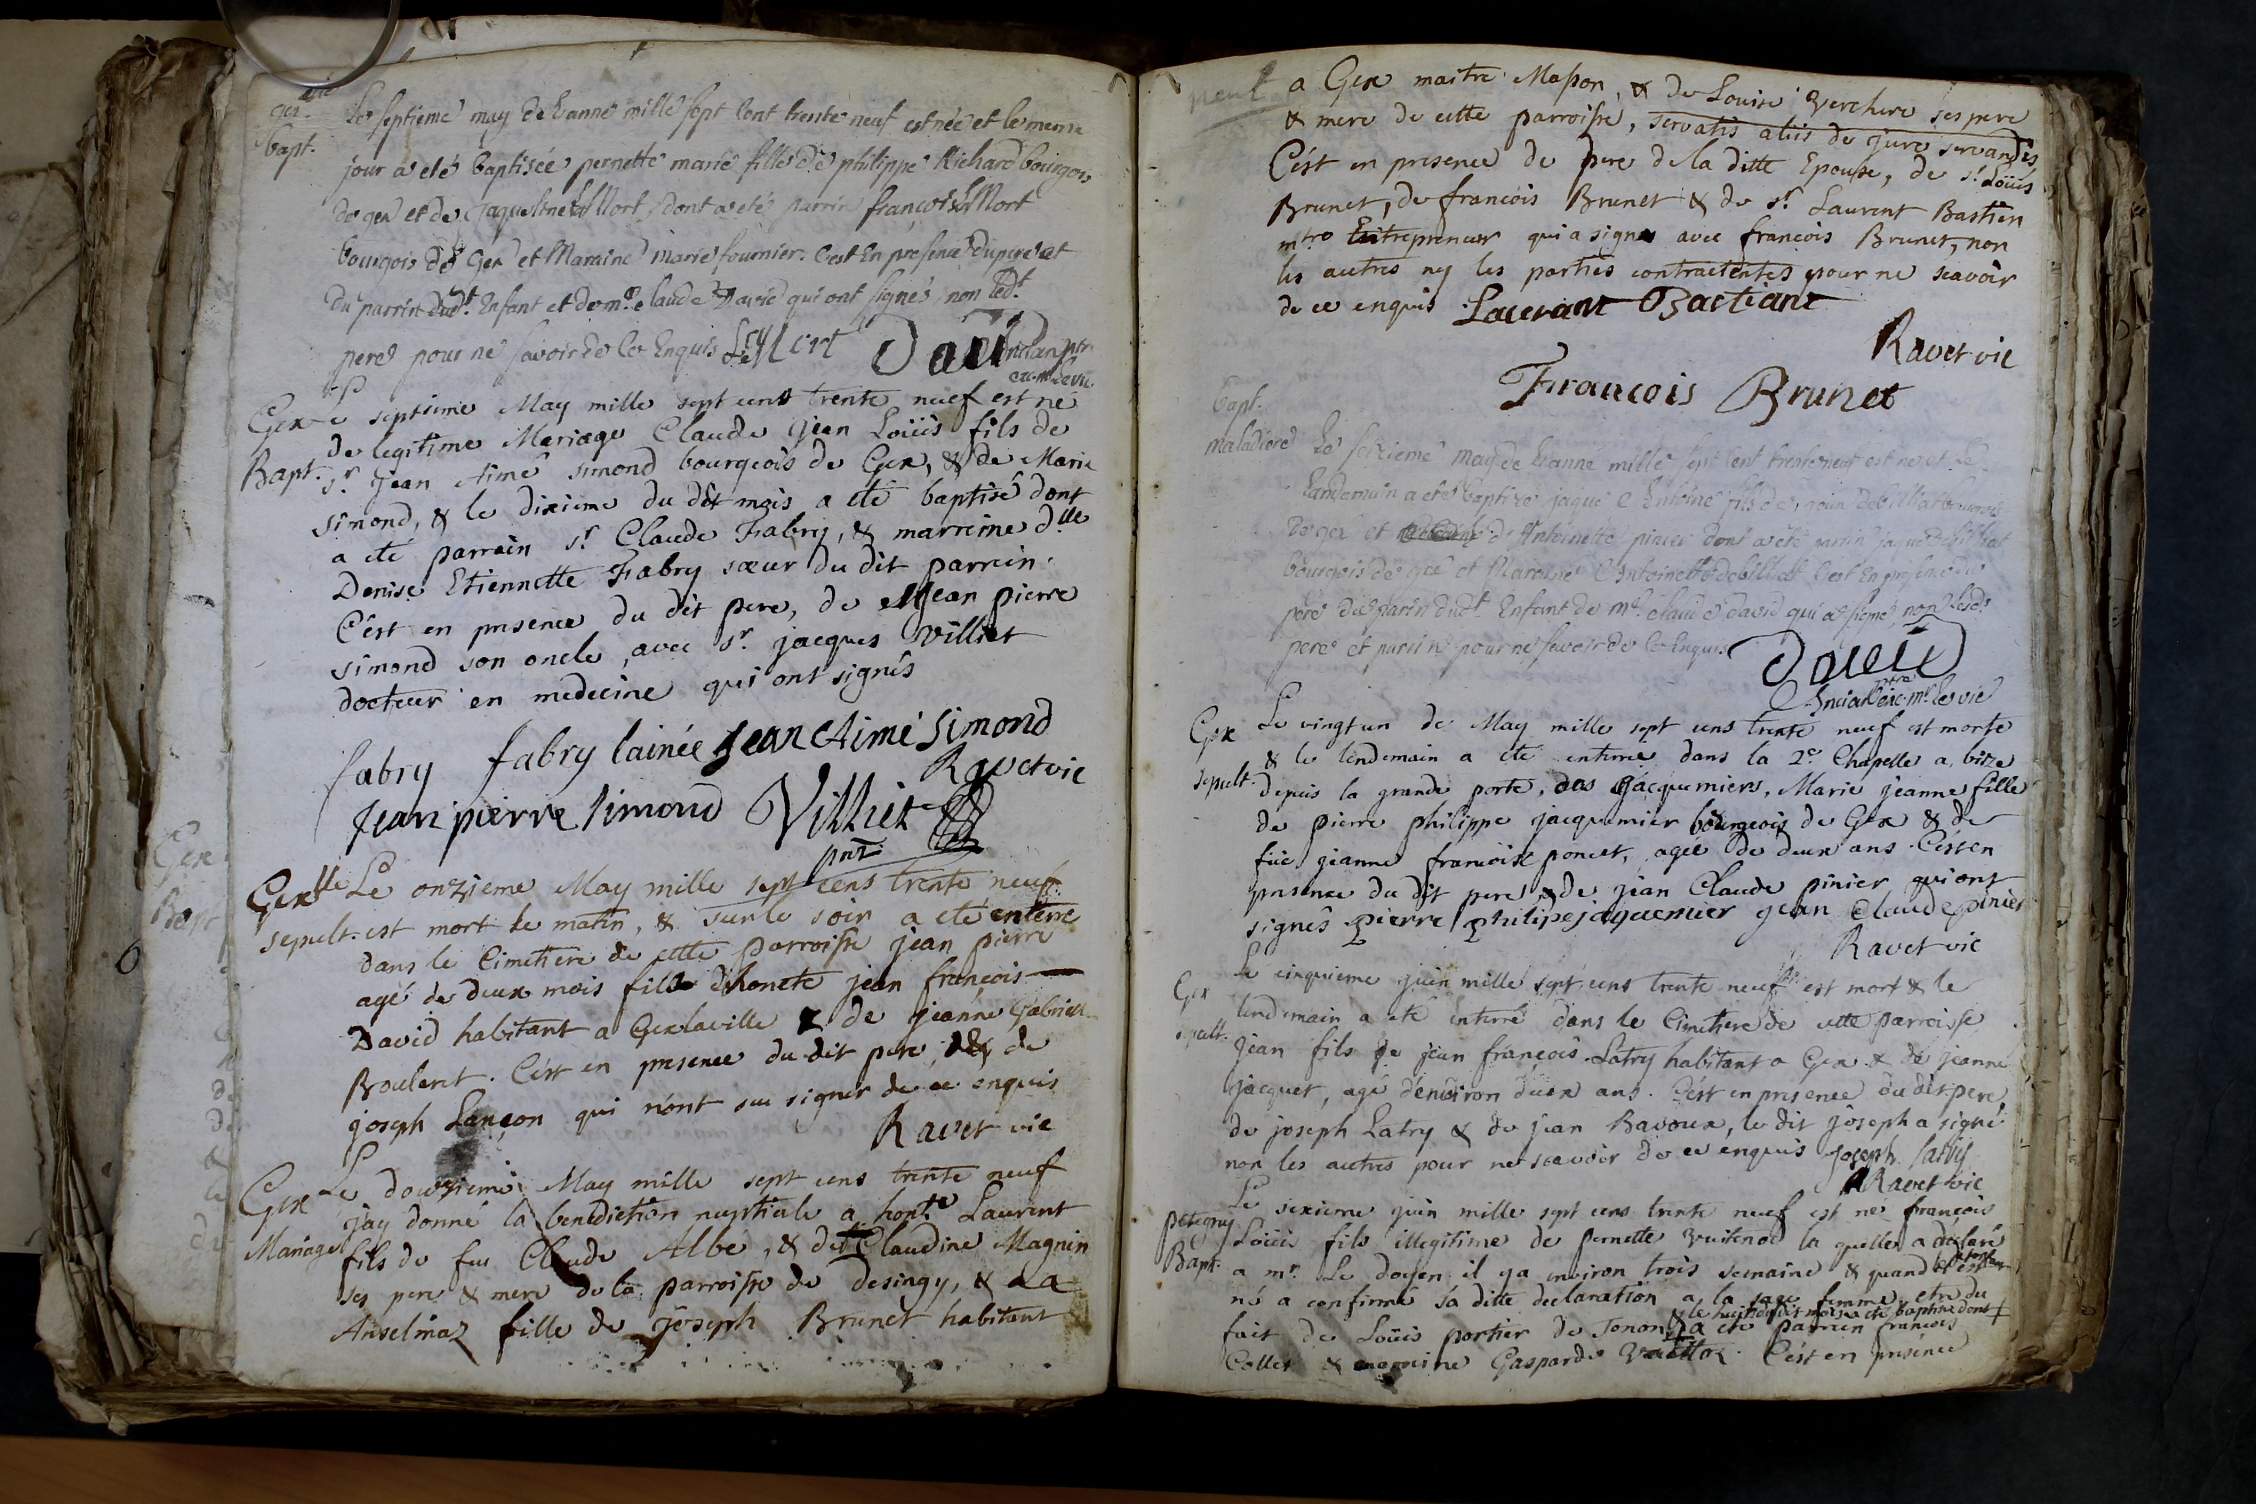 gex
bapt.
Le septieme may de Lanne mille sept Cent trente neuf est née et le meme
jour a eté baptisée pernette marie fille de philippe Richard bourgois
de gex et de Jaqueline Mort, dont a eté parrin françois Mort
bourgois de Gex et Maraine marie fournier. C'est En presence du pere et
du parrin dudt. Enfant et de mr. claude David qui ont signés, non ledt.
pere pour ne savoir de Ce Enquis
David
Gex
Bapt.
Le septieme May mille sept cens trente neuf est né
de legitime Mariage Claude jean Loüis fils de
sr. jean Aimé simond bourgeois de Gex, & de Marie
simond, & le dixieme du dit mois a eté baptisé dont
a eté parrain sr. Claude Fabry, & marreine dlle
Denise Etiennette Fabry sœur du dit parrein.
C'est en presence du dit pere, de jean pierre
simond son oncle, avec sr. jacques Villiet
docteur en medecine qui ont signés
fabry fabry lainée jean Aimé Simond
Ravet vic
jean pierre simond Villiet
Gexlle
sepult.
Le onzieme May mille sept cens trente neuf
est mort le matin, & sur le soir a eté enterré
dans le Cimetiere de cette parroisse jean pierre
agé de deux mois fils d'honete jean françois
David habitant a Gexlaville & de jeanne Gabriell
Bouleret. C'est en presence du dit pere, & de
joseph Lançon qui n'ont sçu signer de ce enquis
Ravet vic
Gex
Mariage
Le douzieme May mille sept cens trente neuf
jay donné la benediction nuptiale a honte Laurent
fils de feu Claude Albe, & de Claudine Magnin
ses pere & mere de la parroisse de desingy, & a
Anselmaz fille de joseph Brunet habitant
a Gex maitre Masson, & de Louise Verchere ses pere
& mere de cette parroisse, servatis aliis de jure servandis,
C'est en presence de pere de la ditte Epouse, de sr. Loüis
Brunet, de francois Brunet & de sr. Laurent Bastien
mtre Entrepreneur qui a signé avec francois Brunet, non
les autres ny les parties contractentes pour ne scavoir
de ce enquis Laurant Bastiant
Ravet vic
Francois Brunet
bapt.
maladiere
Le seizieme may de Lanne mille sept Cent trente neuf est né et le
Landemain a eté baptize jaque fils de
de gex et d'Antoinette pinier dont a eté parrin jaque
bourgois de gex et Maraine Antoinette C'est En presence du
pere du parin dudt. Enfant de mr. claude david qui a signé, non lesd.
pere et parrin pour ne savoir de Ce Enquis
David
Gex
sepult.
Le vingt un de May mille sept cens trente neuf est morte
& le lendemain a eté enterrée dans la 2e. Chapelle a bize
depuis la grande porte, des jacquemiers, Marie jeanne fille
de pierre philippe jacquemier bourgeois de Gex & de
füe jeanne francoise poncet, agée de deux ans. C'est en
presence du dit pere & de jean Claude pinier qui ont
signés pierre philipe jaquemier jean Claude pinier
Ravet vic
Gex
sepult.
Le cinquieme juin mille sept cens trente neuf est mort & le
lendemain a eté enterré dans le Cimetiere de cette parroisse
jean fils de jean françois Latry habitant a Gex & de jeanne
jacquet, agé d'environ deux ans. C'est en presence du dit pere,
de joseph Latry & de jean Bavoux, le dit joseph a signé
non les autres pour ne scavoir de ce enquis joseph latry
Ravet vic
petegny
Bapt.
Le sixieme juin mille sept cens trente neuf est né françois
Loüis fils illegitime de pernette la quelle a déclaré
a mr. Le doyen il y a environ trois semaine & quand
né a confirmé sa ditte declaration a la sage femme etre du
fait de Loüis portier de Tonon & le huit du dit mois a eté baptisé dont
a eté parrein francois
Collet & marreine Gasparde C'est en presence